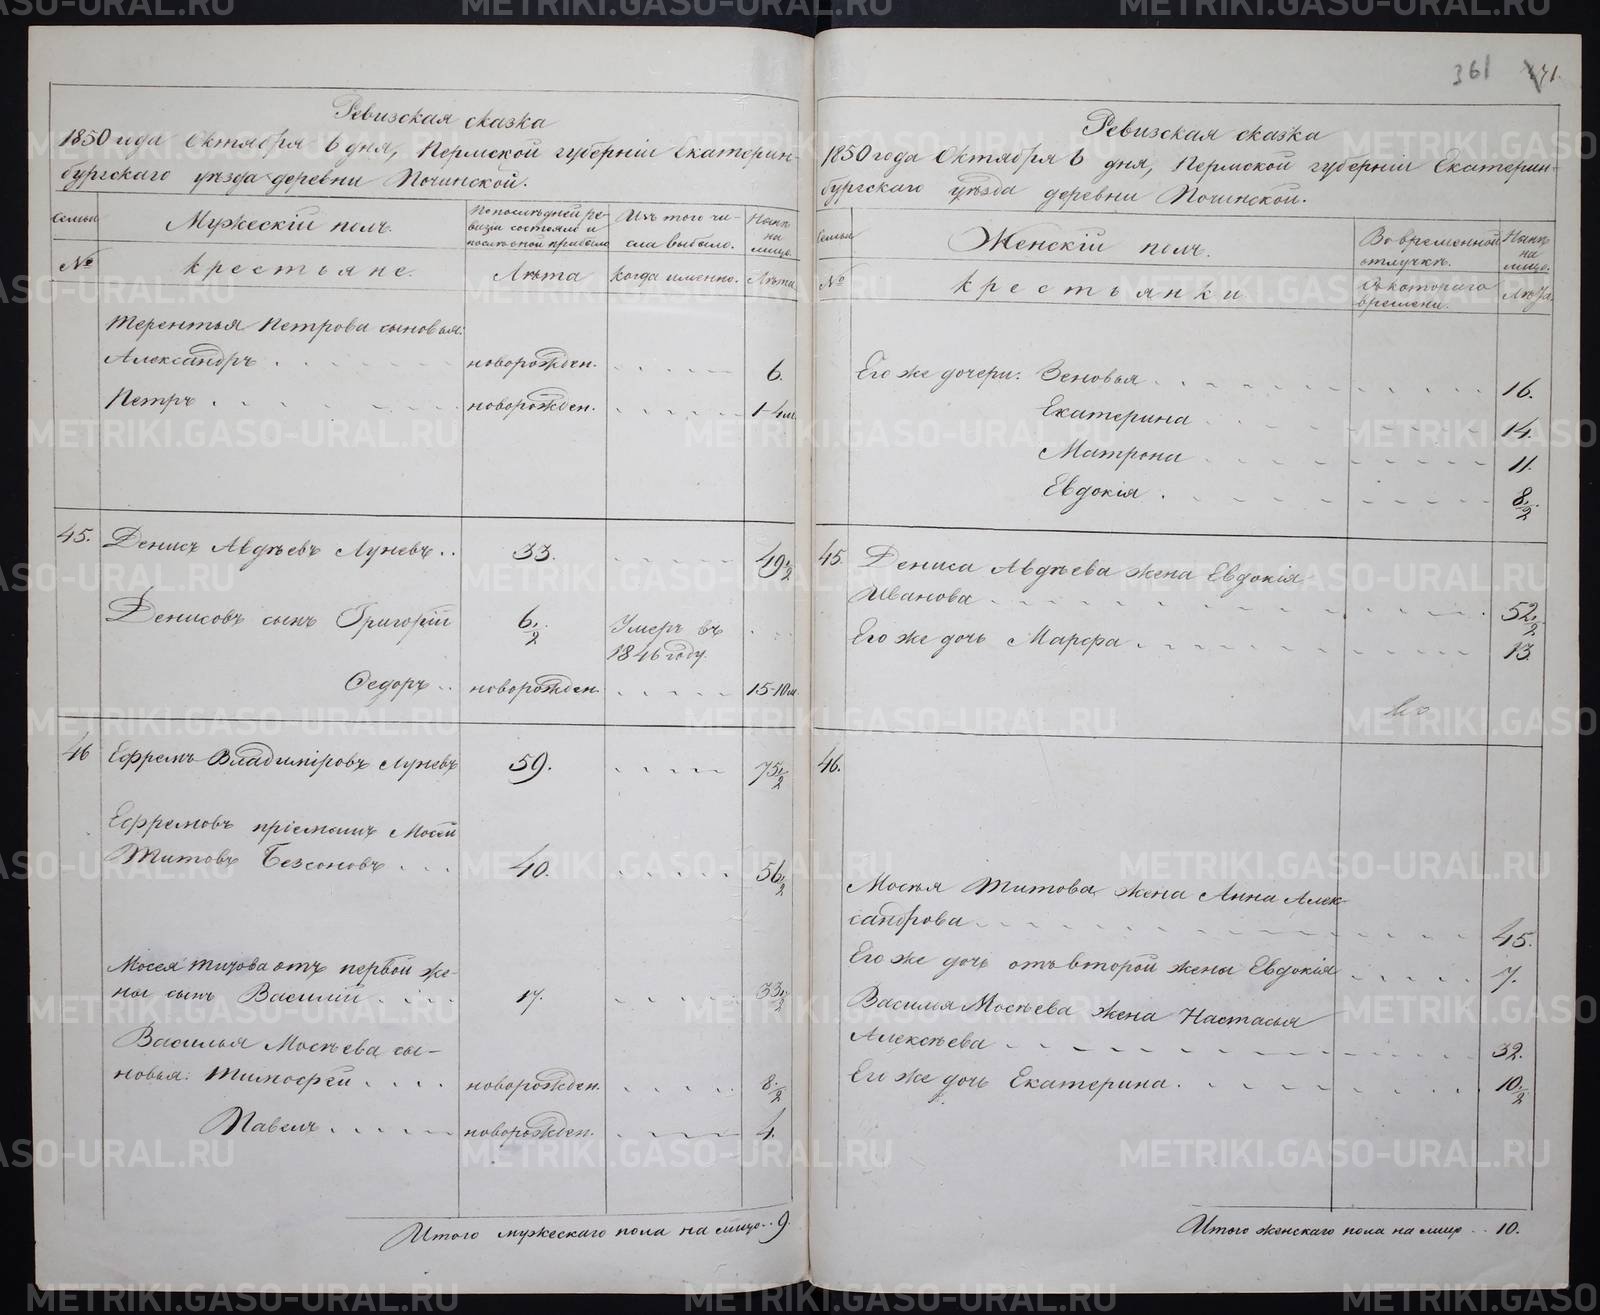 361
Ревизская сказка
1850 года Октября 6 дня, Пермской губерніи Екатерин-
бургскаго уѣзда деревни Починской.
Семьи
Мужескій полъ.
По послѣдней ре-
визіи состояло и
послѣ оной прибыло
Изъ того чи-
сла выбыло.
Нынѣ
на
лицо.
№
Крестьяне.
Лѣта
Когда именно.
Лѣта
Терентья Петрова сыновья:
Александръ новорожден. 6.
Петръ новорожден. 1-4м
45. Денисъ Авдѣевъ Луневъ 33. 49 1/2
Денисовъ сынъ Григорій 6 1/2 Умеръ въ
1846 году.
Федоръ новорожден. 15-10м
46 Ефремъ Владиміровъ Луневъ 59. 75 1/2
Ефремовъ пріемышъ Мосей
Титовъ Безсоновъ 40. 56 1/2
Мосея Титова отъ первой же-
ны сынъ Василій 17. 33 1/2
Василья Мосѣева сы-
новья: Тимофей новорожден. 8 1/2
Павелъ новорожден. 4.
Итого мужескаго пола на лицо 9.
Ревизская сказка
1850 года Октября 6 дня, Пермской губерніи Екатерин-
бургскаго уѣзда деревни Починской.
Семьи
Женскій полъ.
Во временной
отлучкѣ.
Нынѣ
на
лицо.
№
Крестьянки
Съ котораго
времени.
Лѣта
Его же дочери: Зеновья 16.
Екатерина 14.
Матрона 11.
Евдокія 8 1/2
45. Дениса Авдѣева жена Евдокія
Иванова 52 1/2
Его же дочь Марфа 13.
46.
Мосѣя Титова жена Анна Алек-
сандрова 45.
Его же дочь отъ второй жены Евдокія 7.
Василья Мосѣева жена Настасья
Алексѣева 32.
Его же дочь Екатерина 10 1/2
Итого женскаго пола на лицо 10.
METRIKI.GASO-URAL.RU